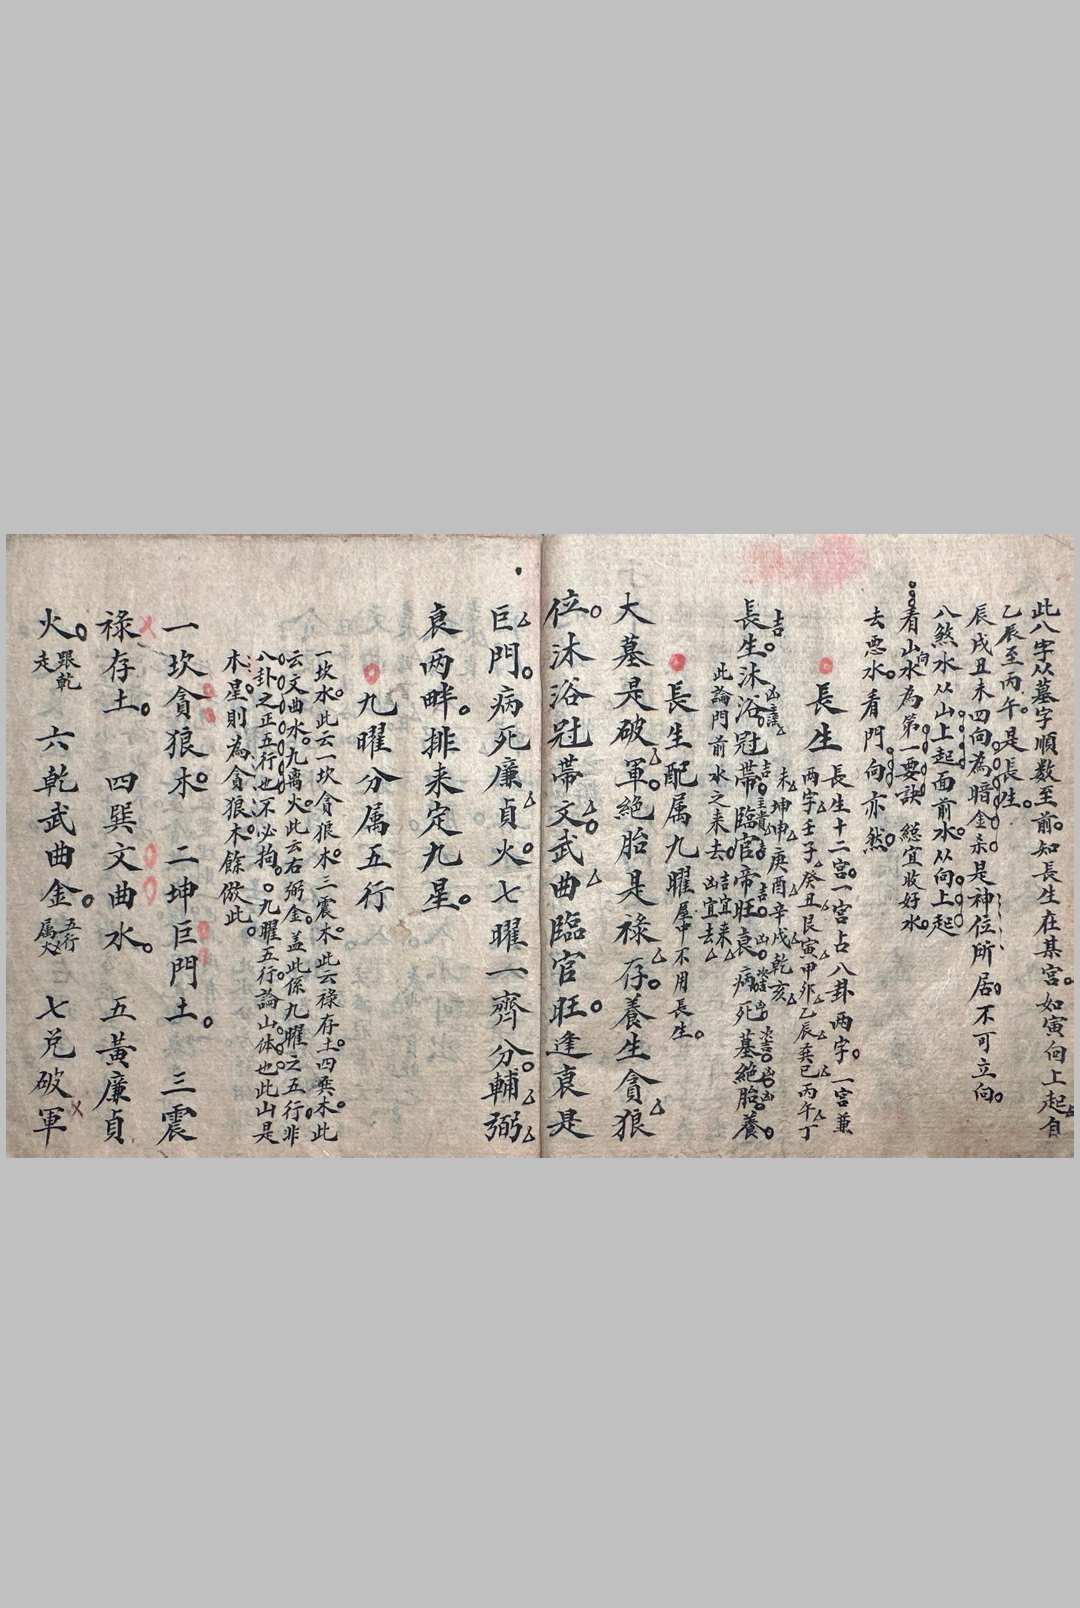 此八字从墓字順数至前知長生在某宮如寅向上起自
乙辰至丙午是長生
辰戌丑未四向為暗金杀是神位所居不可立向
八煞水从山上起面前水从向上起
看山水為第一要訣 總宜收好水
向
去惡水看門向亦然
長生 長生十二宮一宮占八卦两字一宮兼
两字壬子癸丑艮寅甲卯乙辰巽巳丙午丁
未坤申庚酉辛戌乾亥
長生沐浴冠帶臨官帝旺衰病死墓絕胎養
此論門前水之来去吉宜来凶宜去
長生配属九曜 屋中不用長生
大墓是破軍絕胎是祿存養生貪狼
位沐浴冠帶文武曲臨官旺逢衰是
巨門病死廉貞火七曜一齊分輔弼
衰两畔排来定九星
九曜分属五行
一坎水此云一坎貪狼木三震木此云祿存土四巽木此
云文曲水九离火此云右弼金盖此係九曜之五行非
八卦之正五行也不必拘九曜五行論山体也此山是
木星則為貪狼木餘倣此
一坎貪狼木 二坤巨門土 三震
祿存土 四巽文曲水 五黃廉貞
火 跟乾走 六乾武曲金 五行属火 七兑破軍